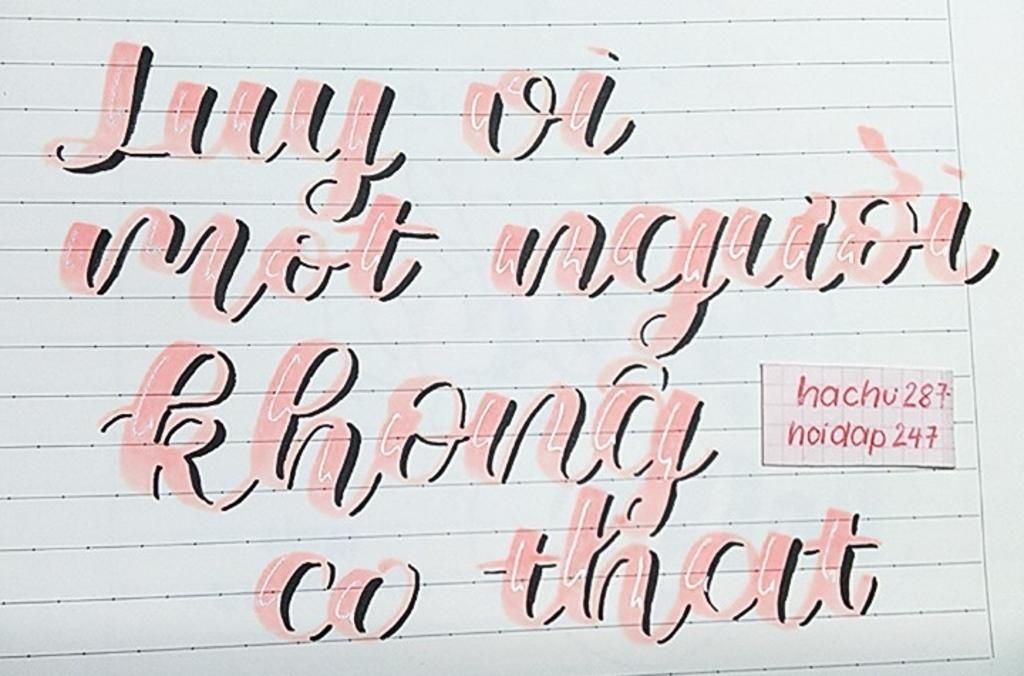 Luỵ vì
một người
không
có thật
hachu287
hoidap247